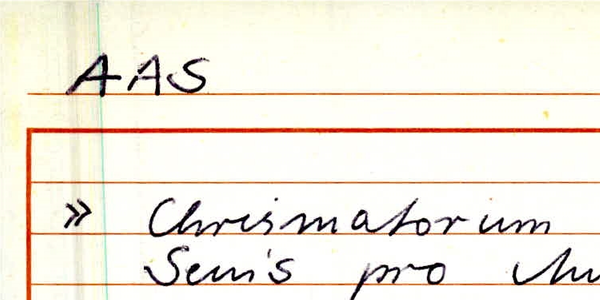 AAS
» Chrismatorum
Senis pro